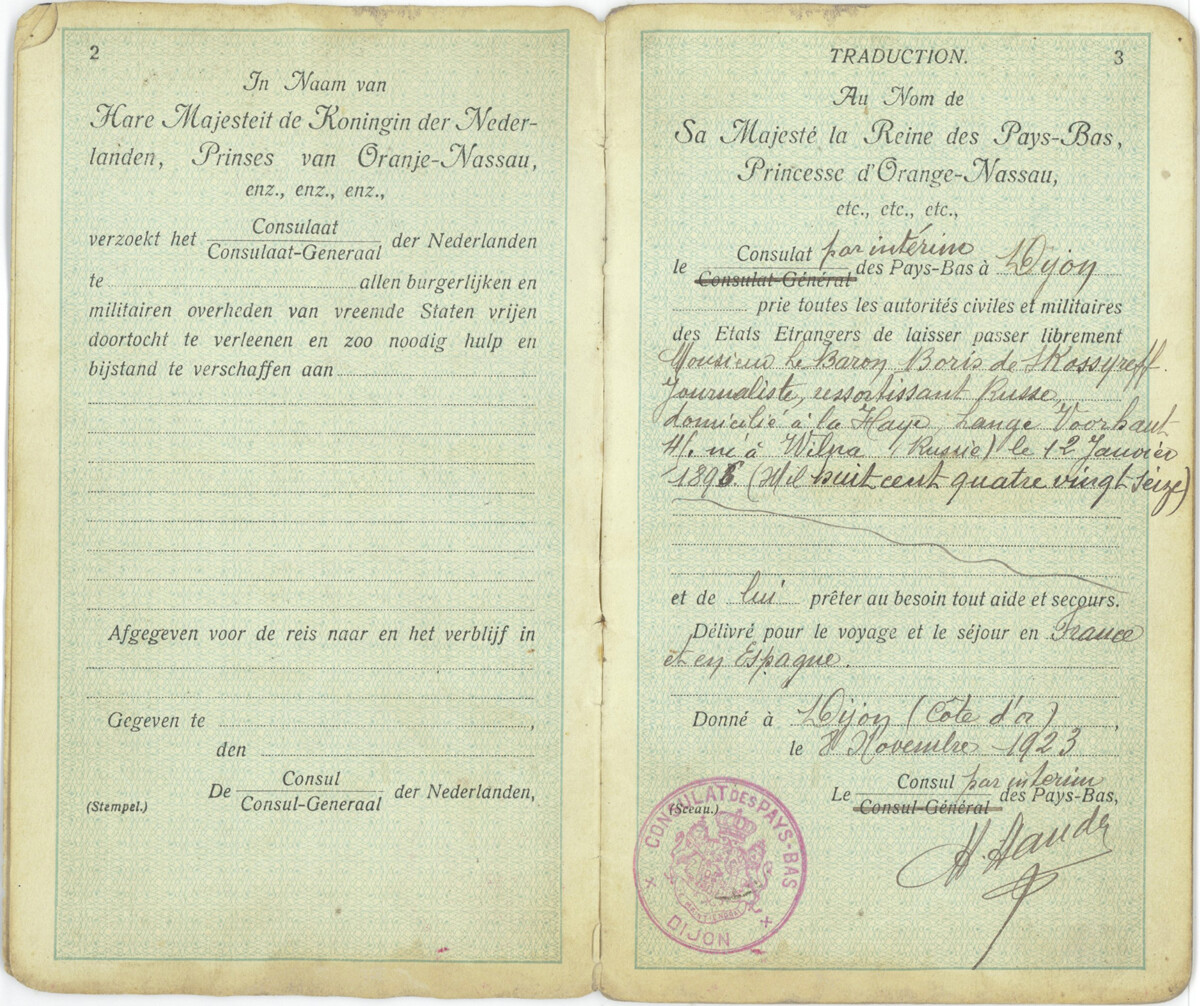 2
In Naam van
Hare Majesteit de Koningin der Neder-
landen, Prinses van Oranje-Nassau,
enz., enz., enz.,
verzoekt het Consulaat der Nederlanden
Consulaat-Generaal
te allen burgerlijken en
militairen overheden van vreemde Staten vrijen
doortocht te verleenen en zoo noodig hulp en
bijstand te verschaffen aan
Afgegeven voor de reis naar en het verblijf in
Gegeven te ,
den
De Consul der Nederlanden,
Consul-Generaal
(Stempel.)
TRADUCTION. 3
Au Nom de
Sa Majesté la Reine des Pays-Bas,
Princesse d'Orange-Nassau,
etc., etc., etc.,
le Consulat par intérim des Pays-Bas à Dijon
Consulat-Général
prie toutes les autorités civiles et militaires
des Etats Etrangers de laisser passer librement
Monsieur le Baron Boris de Skossyreff.
Journaliste, ressortissant Russe,
domicilié à la Haye, Lange Voorhaut
41. né à Wilna (Russie) le 12 Janvier
1896. (Mil huit cent quatre vingt seize)
et de lui prêter au besoin tout aide et secours.
Délivré pour le voyage et le séjour en France
et en Espagne.
Donné à Dijon (Côte d'or),
le 8 Novembre 1923
Le Consul par intérim des Pays-Bas,
Consul-Général
(Sceau.)
CONSULAT DES PAYS-BAS
DIJON